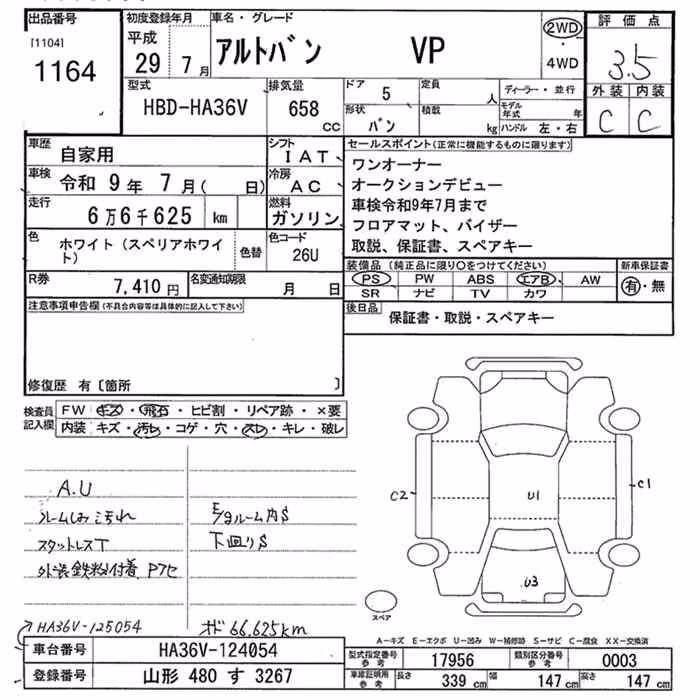 出品番号
[1104]
1164
初度登録年月
平成
29年 7月
車名・グレード
アルトバン VP
2WD
・
4WD
評価点
3.5
外装 内装
C C
型式
HBD-HA36V
排気量
658 CC
ドア 5
形状 バン
定員 人
積載 kg
ディーラー・並行
モデル年式 年
ハンドル 左・右
車歴
自家用
シフト
IAT
車検 令和 9年 7月( 日)
冷房
AC
走行
6万6千625 km
燃料
ガソリン
色
ホワイト(スペリアホワイト)
色替
色コード
26U
R券
7,410円
名変通知期限
月 日
セールスポイント(正常に機能するものに限ります)
ワンオーナー
オークションデビュー
車検令和9年7月まで
フロアマット、バイザー
取説、保証書、スペアキー
装備品(純正品に限り○をつけてください)
PS PW ABS エアB AW
SR ナビ TV カワ
新車保証書
有・無
後日品
保証書・取説・スペアキー
注意事項申告欄(不具合内容等は具体的に記入して下さい)
修復歴 有〔箇所 〕
検査員
記入欄
FW キズ・飛石・ヒビ割・リペア跡・×要
内装 キズ・汚レ・コゲ・穴・スレ・キレ・破レ
A.U
ルームしみ汚れ
スタットレスT
外装鉄粉付着 Pフセ
E/gルーム内S
下回りS
C2
U1
C1
U3
スペア
HA36V-125054
オド 66.625km
A－キズ E－エクボ U－凹み W－補修跡 S－サビ C－腐食 XX－交換済
車台番号
HA36V-124054
登録番号
山形 480 す 3267
型式指定番号
参考
17956
類別区分番号
参考
0003
車庫証明用
参考
長さ 339 cm 幅 147 cm 高さ 147 cm